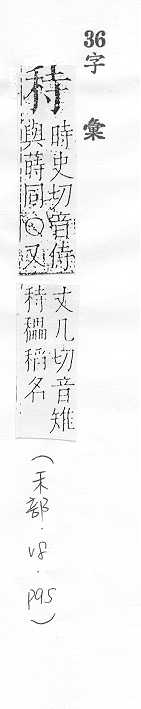 36字彙
秲
時史切音侍
與蒔同○又
丈几切音雉
秲稻名
(禾部.v8.p95)